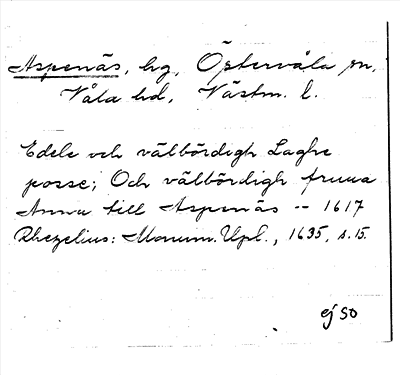 Aspenäs, hg, Östervåla sn,
Våla hd, Västm. l.
Edele och välbördigh Laghe
posse; Och välbördigh fruua
Anna till Aspenäs -- 1617
Rhezelius: Monum. Upl., 1635, s. 15.
ej SO